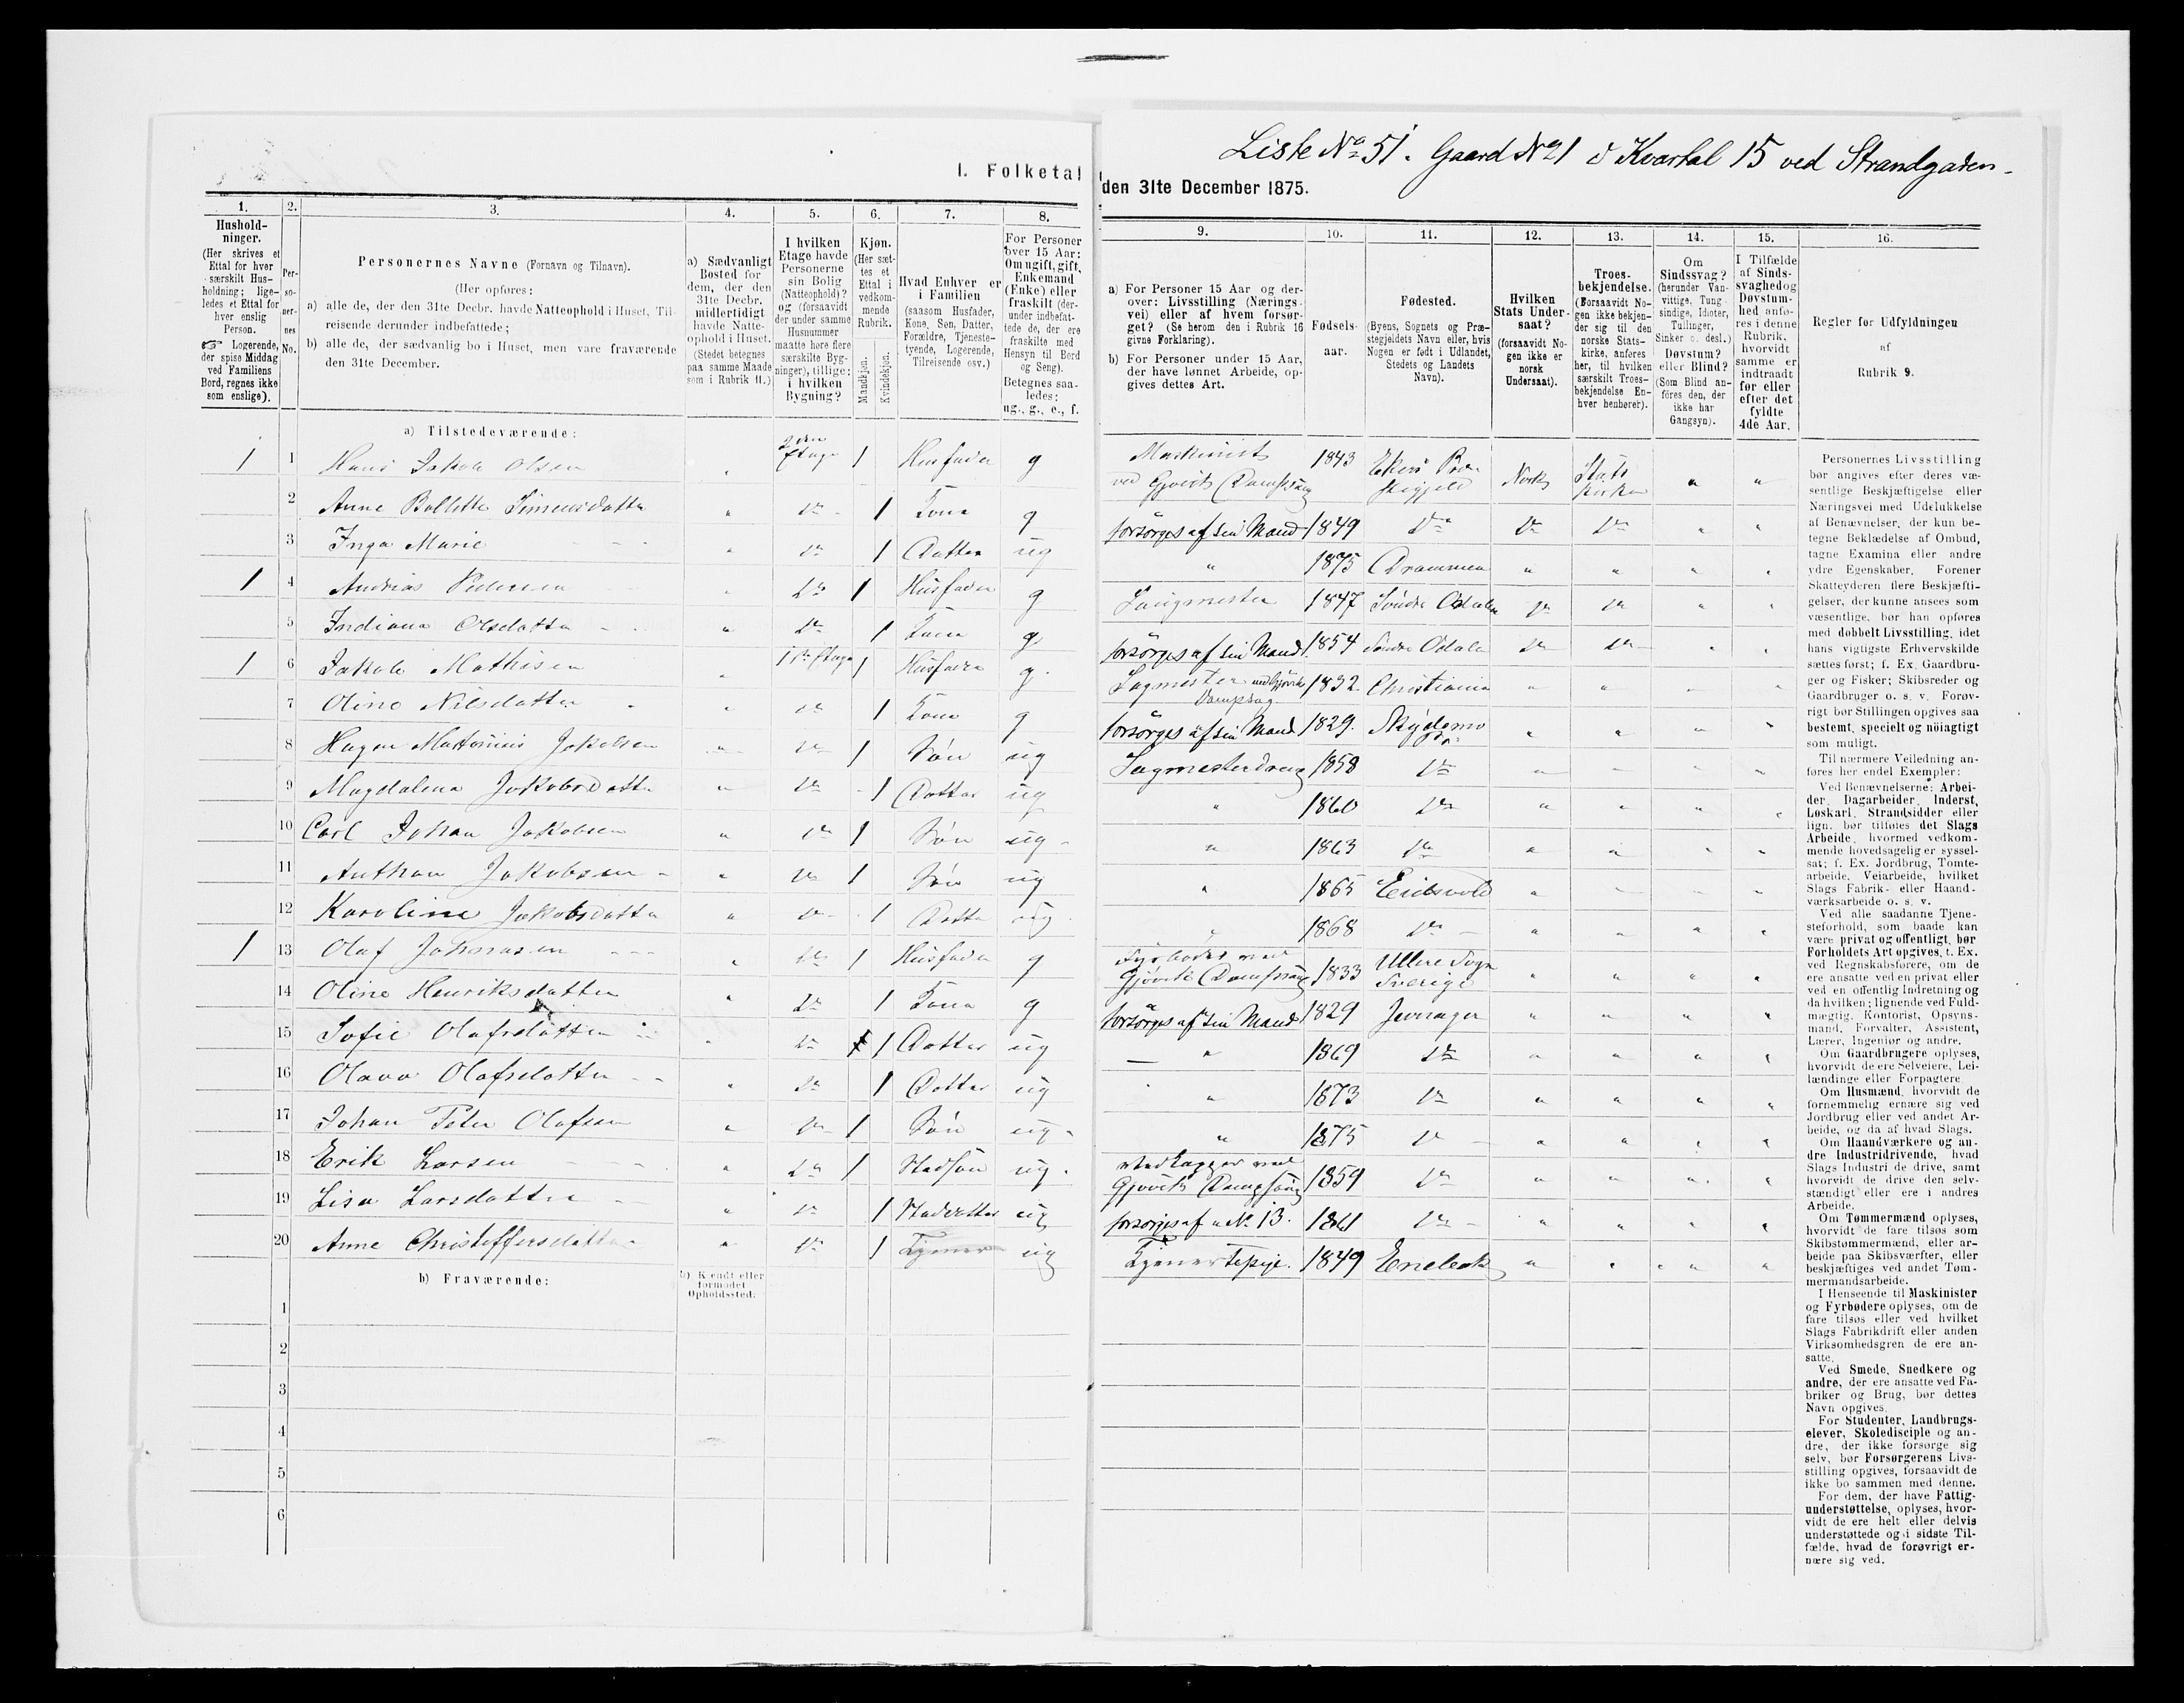 Liste No 51. Gaard No 1 i Kvartal 15 ved Strandgaden.
I. Folketal den 31te December 1875.
1. 2. 3. 4. 5. 6. 7. 8. 9. 10. 11. 12. 13. 14. 15. 16.
Husholdninger.
(Her skrives et
Ettal for hver
særskilt Hus-
holdning; lige-
ledes et Ettal for
hver enslig
Person.
☞ Logerende,
der spise Middag
ved Familiens
Bord, regnes ikke
som enslige).
Per-
so-
ner-
nes
No.
Personernes Navne (Fornavn og Tilnavn).
(Her opføres:
a) alle de, der den 31te Decbr. havde Natteophold i Huset, Til-
reisende derunder indbefattede;
b) alle de, der sædvanlig bo i Huset, men vare fraværende
den 31te December.
a) Sædvanligt
Bosted for
dem, der den
31te Decbr.
midlertidigt
havde Natte-
ophold i Huset.
(Stedet betegnes
paa samme Maade
som i Rubrik 11.)
I hvilken
Etage havde
Personerne
sin Bolig
(Natteophold)?
og (forsaavidt
der under samme
Husnummer
maatte høre flere
særskilte Byg-
ninger), tillige:
i hvilken
Bygning?
Kjøn.
(Her sæt-
tes et
Ettal i
vedkom-
mende
Rubrik.
Mandkjøn.
Kvindekjøn.
Hvad Enhver er
i Familien
(saasom Husfader,
Kone, Søn, Datter,
Forældre, Tjeneste-
tyende, Logerende,
Tilreisende osv.)
For Personer
over 15 Aar:
Om ugift, gift,
Enkemand
(Enke) eller
fraskilt (der-
under indbefat-
tede de, der ere
fraskilte med
Hensyn til Bord
og Seng).
Betegnes saa-
ledes:
ug., g., e., f.
a) For Personer 15 Aar og der-
over: Livsstilling (Nærings-
vei) eller af hvem forsør-
get? (Se herom den i Rubrik 16
givne Forklaring).
b) For Personer under 15 Aar,
der have lønnet Arbeide, op-
gives dettes Art.
Fødsels-
aar.
Fødested.
(Byens, Sognets og Præ-
stegjeldets Navn eller, hvis
Nogen er født i Udlandet,
Stedets og Landets
Navn).
Hvilken
Stats Under-
saat?
(forsaavidt No-
gen ikke er
norsk
Undersaat).
Troes-
bekjendelse.
(Forsaavidt No-
gen ikke bekjen-
der sig til den
norske Stats-
kirke, anføres
her, til hvilken
særskilt Troes-
bekjendelse En-
hver henhører).
Om
Sindssvag?
(herunder Van-
vittige, Tung-
sindige, Idioter,
Tullinger,
Sinker o. desl.)
Døvstum?
eller Blind?
(Som Blind an-
føres den, der
ikke har
Gangsyn).
I Tilfælde
af Sinds-
svaghed og
Døvstum-
hed anfø-
res i denne
Rubrik,
hvorvidt
samme er
indtraadt
før eller
efter det
fyldte
4de Aar.
Regler for Udfyldningen
af
Rubrik 9.
a) Tilstedeværende:
1 1 Hans Jakob Olsen " 2den Etage 1 Husfader g Maskinist ved Gjøviks Dampsaug 1843 Ekers Præstegjeld Norsk Statskirken " "
2 Anne Bollette Simensdatter " do 1 Kone g forsørges af sin Mand 1849 do do do " "
3 Inga Marie " do 1 Datter ug " 1875 Drammen " " " "
1 4 Andreas Pedersen " do 1 Husfader g Saugmester 1847 Søndre Odalen do do " "
5 Indiana Olsdatter " do 1 Kone g forsørges af sin Mand 1854 Søndre Odalen do do " "
1 6 Jakob Mathisen " 1ste Etage 1 Husfader g. Sagmester ved Gjøviks Dampsag. 1832 Christiania " " " "
7 Oline Nilsdatter " do 1 Kone g forsørges af sin Mand 1829. " " " "
8 Jakobsen " do 1 Søn ug Sagmesterdreng 1858 do " " " "
9 Magdalena Jakobsdatter " do 1 Datter ug " 1860 do " " " "
10 Carl Johan Jakobsen " do 1 Søn ug " 1863 do " " " "
11 Anthon Jakobsen " do 1 Søn ug " 1865 Eidsvold " " " "
12 Karoline Jakobsdatter " do 1 Datter ug " 1868 do " " " "
1 13 Olaf Johnasen " do 1 Husfader g Fyrbøder ved Gjøviks Dampsaug 1833 Sogn Sverige " " " "
14 Oline Henriksdatter " do 1 Kone g forsørges af sin Mand 1829 " " " "
15 Sofie Olafsdatter " do 1 Datter ug " 1869 do " " " "
16 Olava Olafsdatter " do 1 Datter ug " 1873 do " " " "
17 Johan Peter Olafsen " do 1 Søn ug " 1875 do " " " "
18 Erik Larsen " do 1 Stedsøn ug. ved Gjøviks Dampsaug 1859 do " " " "
19 Lisa Larsdatter " do 1 Steddatter ug forsørges af No 13. 1861 do " " " "
20 Anne Christoffersdatter " do 1 ug Tjenestepige. 1849 Enebak " " " "
b) Fraværende:
b) Kjendt eller
formodet
Opholdssted:
1
2
3
4
5
6
Personernes Livsstilling
bør angives efter deres væ-
sentlige Beskjæftigelse eller
Næringsvei med Udelukkelse
af Benævnelser, der kun be-
tegne Beklædelse af Ombud,
tagne Examina eller andre
ydre Egenskaber. Forener
Skatteyderen flere Beskjæfti-
gelser, der kunne ansees som
væsentlige, bør han opføres
med dobbelt Livsstilling, idet
hans vigtigste Erhvervskilde
sættes først; f. Ex. Gaardbru-
ger og Fisker; Skibsreder og
Gaardbruger o. s. v. Forøv-
rigt bør Stillingen opgives saa
bestemt, specielt og nöiagtigt
som muligt.
Til nærmere Veiledning an-
føres her endel Exempler:
Ved Benævnelserne: Arbei-
der, Dagarbeider, Inderst,
Løskarl, Strandsidder eller
lign. bør tilføies det Slags
Arbeide, hvormed vedkom-
mende hovedsagelig er syssel-
sat; f. Ex. Jordbrug, Tomte-
arbeide, Veiarbeide, hvilket
Slags Fabrik- eller Haand-
værksarbeide o. s. v.
Ved alle saadanne Tjene-
steforhold, som baade kan
være privat og offentligt, bør
Forholdets Art opgives, t. Ex.
ved Regnskabsførere, om de
ere ansatte ved en privat eller
ved en offentlig Indretning og
da hvilken; lignende ved Fuld-
mægtig, Kontorist, Opsyns-
mand, Forvalter, Assistent,
Lærer, Ingeniør og andre.
Om Gaardbrugere oplyses,
hvorvidt de ere Selveiere, Lei-
lændinge eller Forpagtere
Om Husmænd, hvorvidt de
fornemmelig ernære sig ved
Jordbrug eller ved andet Ar-
beide, og da af hvad Slags.
Om Haandværkere og an-
dre Industridrivende, hvad
Slags Industri de drive, samt
hvorvidt de drive den selv-
stændigt eller ere i andres
Arbeide.
Om Tømmermænd oplyses,
hvorvidt de fare tilsøs som
Skibstømmermænd, eller ar-
beide paa Skibsværfter, eller
beskjæftiges ved andet Tøm-
mermandsarbeide.
I Henseende til Maskinister
og Fyrbødere oplyses, om de
fare tilsøs eller ved hvilket
Slags Fabrikdrift eller anden
Virksomhedsgren de ere an-
satte.
Ved Smede, Snedkere og
andre, der ere ansatte ved Fa-
briker og Brug, bør dettes
Navn opgives.
For Studenter, Landbrugs-
elever, Skoledisciple og an-
dre, der ikke forsørge sig
selv, bør Forsørgerens Livs-
stilling opgives, forsaavidt de
ikke bo sammen med denne.
For dem, der have Fattig-
understøttelse, oplyses, hvor-
vidt de ere helt eller delvis
understøttede og i sidste Til-
fælde, hvad de forøvrigt er-
nære sig ved.